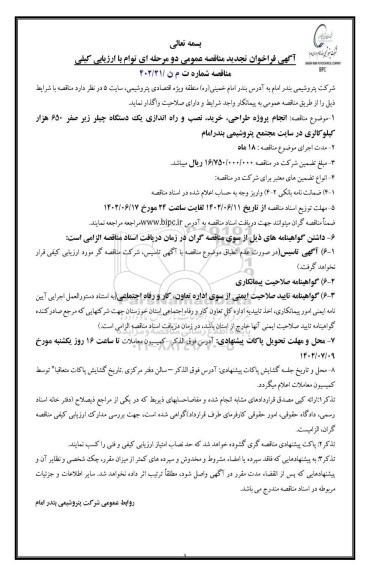 بسمه تعالی
آگهی فراخوان تجدید مناقصه عمومی دو مرحله ای توام با ارزیابی کیفی
مناقصه شماره ت م ن /۴۰۲/۲۱
BIPC
شرکت پتروشیمی بندر امام به آدرس بندر امام خمینی(ره) منطقه ویژه اقتصادی پتروشیمی، سایت ۵ در نظر دارد مناقصه با شرایط
ذیل را از طریق مناقصه عمومی به پیمانکار واجد شرایط و دارای صلاحیت واگذار نماید.
۱-موضوع مناقصه: انجام پروژه طراحی، خرید، نصب و راه اندازی یک دستگاه چیلر زیر صفر ۶۵۰ هزار
کیلوکالری در سایت مجتمع پتروشیمی بندرامام
۲- مدت اجرای موضوع مناقصه : ۱۸ ماه
۳- مبلغ تضمین شرکت در مناقصه ۱۶/۷۵۰/۰۰۰/۰۰۰ ریال میباشد.
۴- انواع تضمین های معتبر برای شرکت در مناقصه:
۴-۱) ضمانت نامه بانکی ۴-۲) واریز وجه به حساب اعلام شده در اسناد مناقصه
۵- مهلت توزیع اسناد مناقصه از تاریخ ۱۴۰۲/۰۶/۱۱ لغایت ساعت ۲۴ مورخ ۱۴۰۲/۰۶/۱۷
ضمناً مناقصه گران میتوانند جهت دریافت اسناد مناقصه به آدرس www.bipc.ir مراجعه مراجعه نمایند.
۶- داشتن گواهینامه های ذیل از سوی مناقصه گران در زمان دریافت اسناد مناقصه الزامی است:
۶-۱) آگهی تاسیس(در صورت عدم انطباق موضوع مناقصه با آگهی تاسیس، شرکت مناقصه گر مورد ارزیابی کیفی قرار
نخواهد گرفت.)
۶-۲) گواهینامه صلاحیت پیمانکاری
۶-۳) گواهینامه تایید صلاحیت ایمنی از سوی اداره تعاون، کار و رفاه اجتماعی(به استناد دستورالعمل اجرایی آیین
نامه ایمنی امور پیمانکاری، اخذ تاییدیه اداره کل تعاون کار و رفاه اجتماعی استان خوزستان جهت شرکتهایی که مرجع صادرکننده
گواهینامه تایید صلاحیت ایمنی آنها خارج از استان باشد، در زمان دریافت اسناد مناقصه الزامی است.)
۷- محل و مهلت تحویل پاکات پیشنهادی: آدرس فوق الذکر- کمیسیون معاملات تا ساعت ۱۶ روز یکشنبه مورخ
۱۴۰۲/۰۷/۰۹
۸- محل و تاریخ جلسه گشایش پاکات پیشنهادی: آدرس فوق الذکر – سالن دفتر مرکزی .تاریخ گشایش پاکات متعاقبا" توسط
کمیسیون معاملات اعلام میگردد.
تذکر۱:ارائه کپی مصدق قراردادهای مشابه انجام شده و مفاصاحسابهای ذیربط که در یکی از مراجع ذیصلاح (دفتر خانه اسناد
رسمی، دادگاه حقوقی، امور حقوقی کارفرمای طرف قرارداد)گواهی شده است، جهت بررسی مدارک ارزیابی کیفی مناقصه
گران، الزامیست.
تذکر۲: پاکت پیشنهادی مناقصه گری گشوده خواهد شد که حد نصاب امتیاز ارزیابی کیفی و فنی را کسب نمایند.
تذکر۳: به پیشنهادهایی که فاقد سپرده یا امضاء مشروط و مخدوش و سپرده های کمتر از میزان مقرر، چک شخصی و نظایر آن و
پیشنهادهایی که پس از انقضاء مدت مقرر در آگهی واصل شود، مطلقاً ترتیب اثر داده نخواهد شد. سایر اطلاعات و جزئیات
مربوطه در اسناد مناقصه مندرج می باشد.
روابط عمومی شرکت پتروشیمی بندر امام